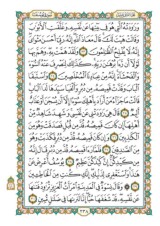 وَرَٰوَدَتْهُ ٱلَّتِى هُوَ فِى بَيْتِهَا عَن نَّفْسِهِۦ وَغَلَّقَتِ ٱلْأَبْوَٰبَ
وَقَالَتْ هَيْتَ لَكَ قَالَ مَعَاذَ ٱللَّهِ إِنَّهُۥ رَبِّىٓ أَحْسَنَ مَثْوَاىَ
إِنَّهُۥ لَا يُفْلِحُ ٱلظَّٰلِمُونَ وَلَقَدْ هَمَّتْ بِهِۦ وَهَمَّ بِهَا
لَوْلَآ أَن رَّءَا بُرْهَٰنَ رَبِّهِۦ كَذَٰلِكَ لِنَصْرِفَ عَنْهُ ٱلسُّوٓءَ
وَٱلْفَحْشَآءَ إِنَّهُۥ مِنْ عِبَادِنَا ٱلْمُخْلَصِينَ وَٱسْتَبَقَا
ٱلْبَابَ وَقَدَّتْ قَمِيصَهُۥ مِن دُبُرٍ وَأَلْفَيَا سَيِّدَهَا لَدَا ٱلْبَابِ
قَالَتْ مَا جَزَآءُ مَنْ أَرَادَ بِأَهْلِكَ سُوٓءًا إِلَّآ أَن يُسْجَنَ أَوْ عَذَابٌ
أَلِيمٌ قَالَ هِىَ رَٰوَدَتْنِى عَن نَّفْسِى وَشَهِدَ شَاهِدٌ مِّنْ
أَهْلِهَآ إِن كَانَ قَمِيصُهُۥ قُدَّ مِن قُبُلٍ فَصَدَقَتْ وَهُوَ مِنَ
ٱلْكَٰذِبِينَ وَإِن كَانَ قَمِيصُهُۥ قُدَّ مِن دُبُرٍ فَكَذَبَتْ
وَهُوَ مِنَ ٱلصَّٰدِقِينَ فَلَمَّا رَءَا قَمِيصَهُۥ قُدَّ مِن دُبُرٍ قَالَ إِنَّهُۥ
مِن كَيْدِكُنَّ إِنَّ كَيْدَكُنَّ عَظِيمٌ يُوسُفُ أَعْرِضْ عَنْ
هَٰذَا وَٱسْتَغْفِرِى لِذَنۢبِكِ إِنَّكِ كُنتِ مِنَ ٱلْخَاطِـِٔينَ
وَقَالَ نِسْوَةٌ فِى ٱلْمَدِينَةِ ٱمْرَأَتُ ٱلْعَزِيزِ تُرَٰوِدُ فَتَىٰهَا
عَن نَّفْسِهِۦ قَدْ شَغَفَهَا حُبًّا إِنَّا لَنَرَىٰهَا فِى ضَلَٰلٍ مُّبِينٍ
٢٣٨